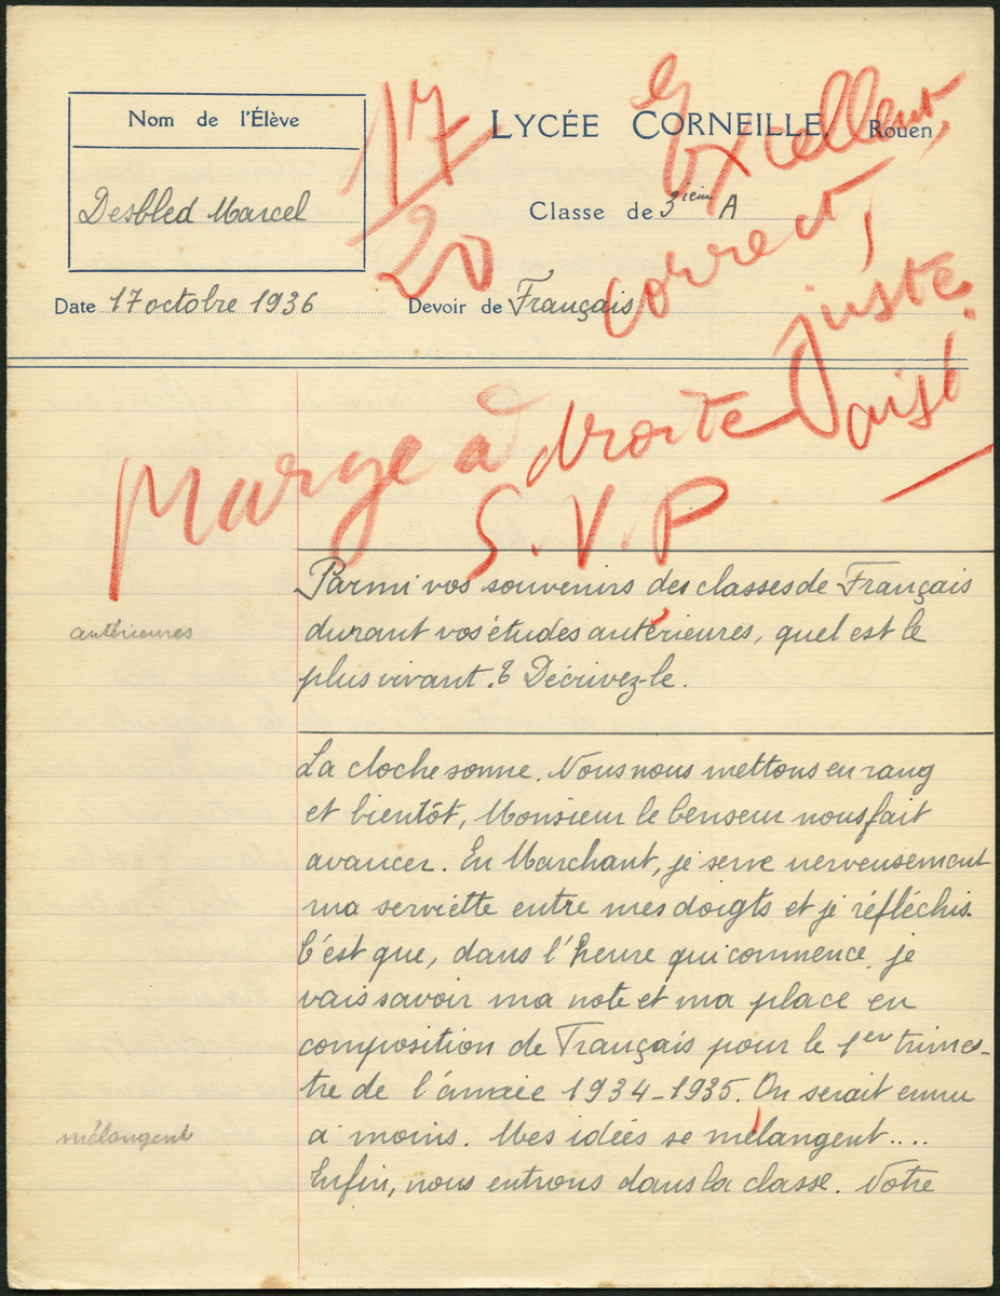 Nom de l'Élève
Desbled Marcel
LYCÉE CORNEILLE, Rouen
Classe de 3ième A
Date 17 octobre 1936
Devoir de Français
17
20
Excellent,
correct,
juste.
aisé!
Marge à droite
S.V.P
Parmi vos souvenirs des classes de Français
durant vos études antérieures, quel est le
plus vivant.? Décrivez-le.
antérieures
La cloche sonne. Nous nous mettons en rang
et bientôt, Monsieur le Censeur nous fait
avancer. En Marchant, je serre nerveusement
ma serviette entre mes doigts et je réfléchis.
C'est que, dans l'heure qui commence, je
vais savoir ma note et ma place en
composition de Français pour le 1er trimes-
tre de l'année 1934-1935. On serait ému
à moins. Mes idées se mélangent....
mélangent
Enfin, nous entrons dans la classe. Notre